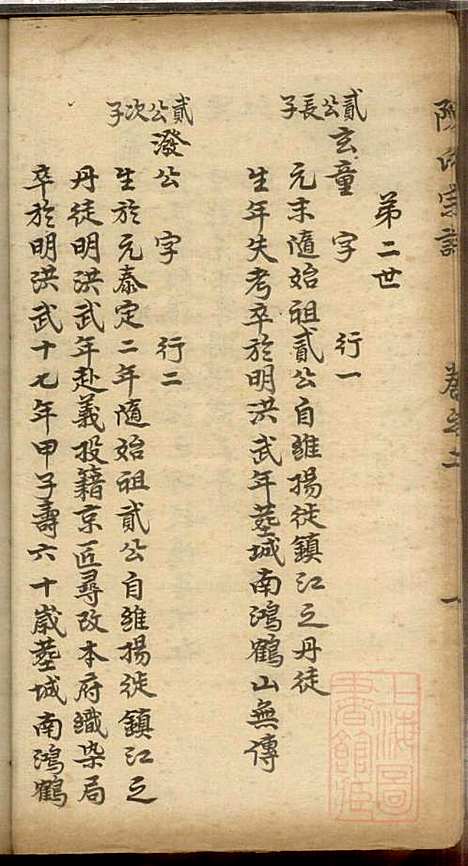 宗譜
卷之二
一
第二世
貳公長子
玄童 字 行一
元末隨始祖貳公自維揚徙鎮江之丹徒
生年失考卒於明洪武年塟城南鴻鶴山無傳
貳公次子
潑公 字 行二
生於元泰定二年隨始祖貳公自維揚徙鎮江之
丹徒明洪武年赴義投籍京匠尋改本府織染局
卒於明洪武十七年甲子壽六十歲塟城南鴻鶴
上海圖書館藏